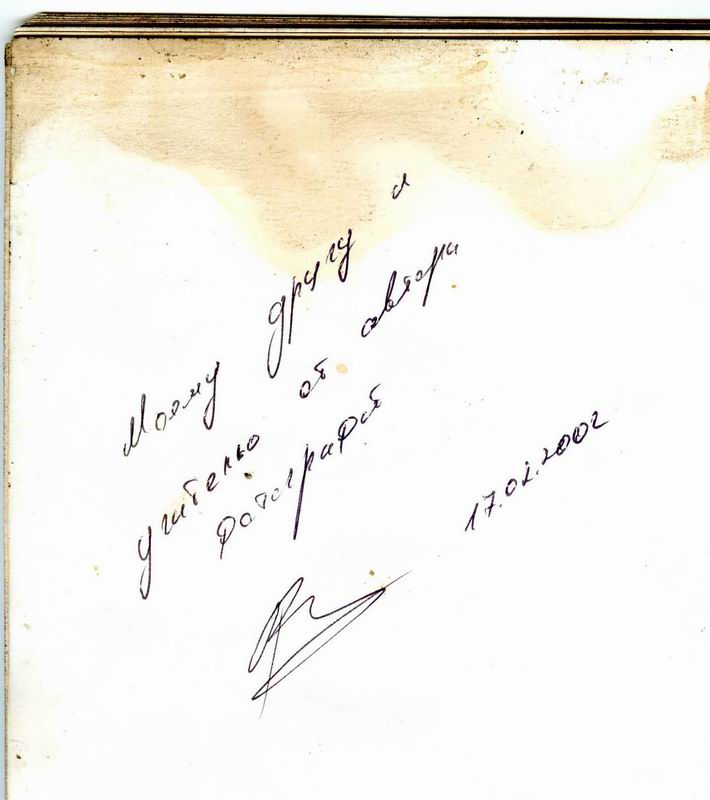 Моему другу и
учителю от автора
фотографий
17.02.2002